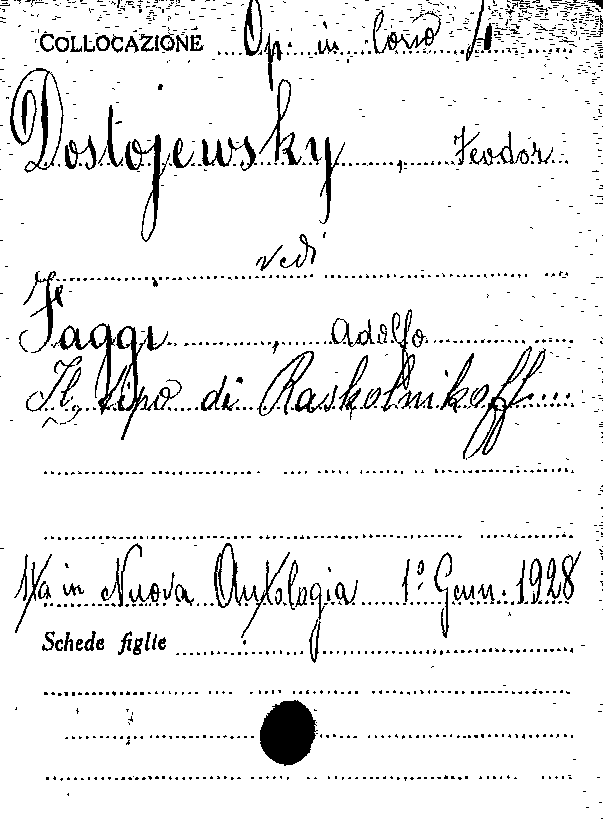 COLLOCAZIONE Op. in Corso
Dostojewsky, Feodor
vedi
Faggi, Adolfo
Il tipo di Raskolnikoff
in Nuova Antologia 1º Genn. 1928
Schede figlie